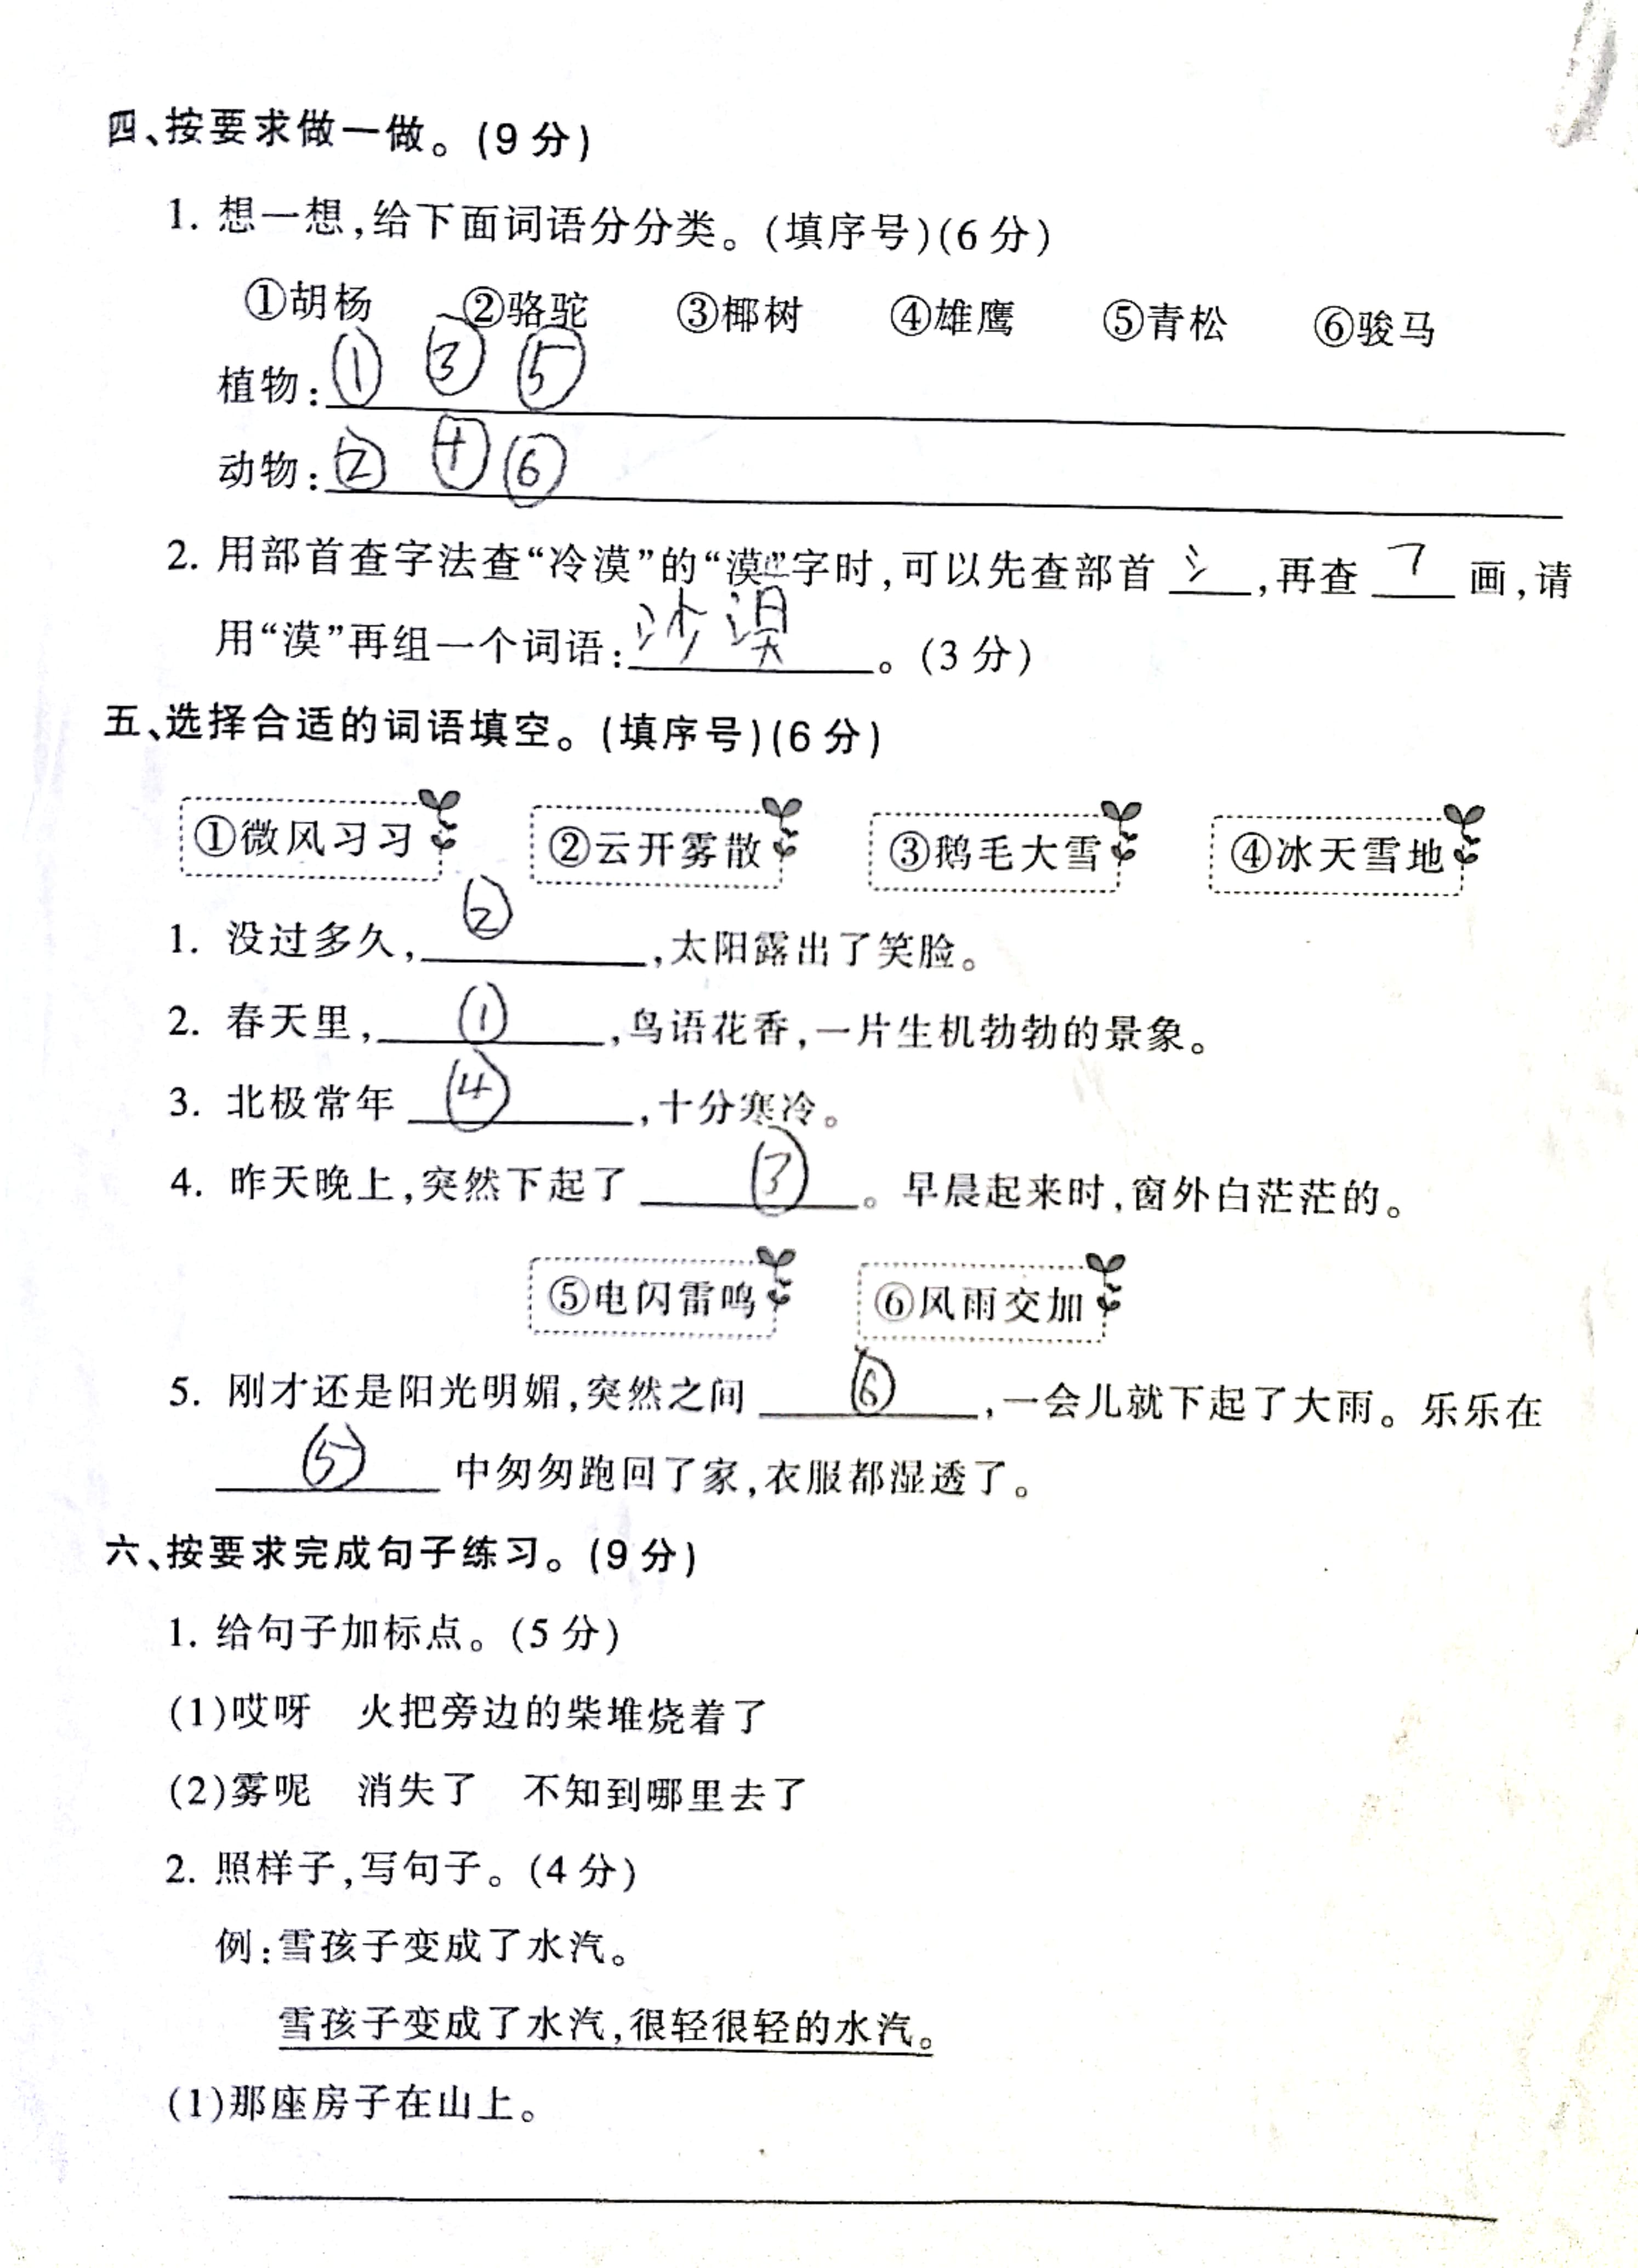 四、按要求做一做。(9分)
1. 想一想,给下面词语分分类。(填序号)(6分)
①胡杨 ②骆驼 ③椰树 ④雄鹰 ⑤青松 ⑥骏马
植物:① ③ ⑤
动物:② ④ ⑥
2. 用部首查字法查“冷漠”的“漠”字时,可以先查部首 氵 ,再查 7 画,请
用“漠”再组一个词语: 。(3分)
五、选择合适的词语填空。(填序号)(6分)
①微风习习 ②云开雾散 ③鹅毛大雪 ④冰天雪地
1. 没过多久, ② ,太阳露出了笑脸。
2. 春天里, ① ,鸟语花香,一片生机勃勃的景象。
3. 北极常年 ④ ,十分寒冷。
4. 昨天晚上,突然下起了 ③ 。早晨起来时,窗外白茫茫的。
⑤电闪雷鸣 ⑥风雨交加
5. 刚才还是阳光明媚,突然之间 ⑥ ,一会儿就下起了大雨。乐乐在
⑤ 中匆匆跑回了家,衣服都湿透了。
六、按要求完成句子练习。(9分)
1. 给句子加标点。(5分)
(1)哎呀 火把旁边的柴堆烧着了
(2)雾呢 消失了 不知到哪里去了
2. 照样子,写句子。(4分)
例:雪孩子变成了水汽。
雪孩子变成了水汽,很轻很轻的水汽。
(1)那座房子在山上。